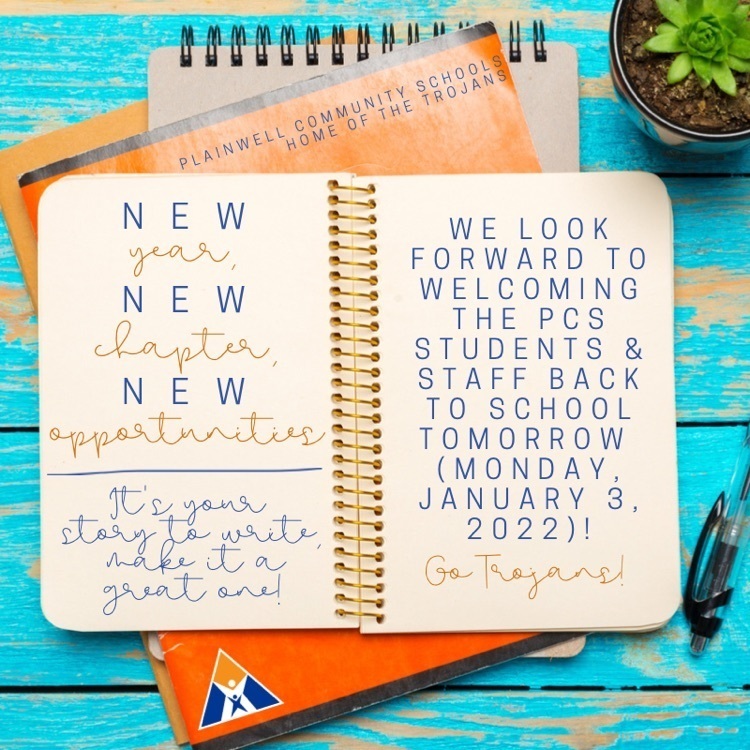 PLAINWELL COMMUNITY SCHOOLS
HOME OF THE TROJANS
NEW
year,
NEW
chapter,
NEW
opportunities
It's your
story to write,
make it a
great one!
WE LOOK
FORWARD TO
WELCOMING
THE PCS
STUDENTS &
STAFF BACK
TO SCHOOL
TOMORROW
(MONDAY,
JANUARY 3,
2022)!
Go Trojans!